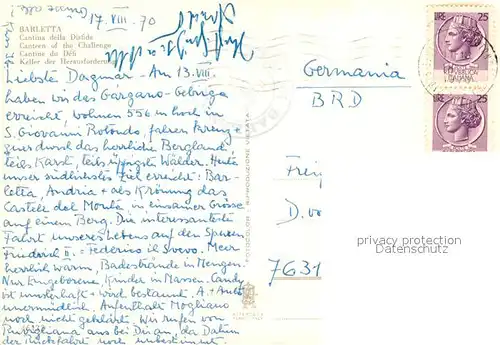 17.VIII.70
BARLETTA
Cantina della Disfida
Canteen of the Challenge
Cantine du Défi
Keller der Herausforderung
Liebste Dagmar - Am 13.VIII.
haben wir das Gargano-Gebirge
erreicht, wohnen 556 m hoch in
S. Giovanni Rotondo, fahren kreuz +
quer durch das herrliche Bergland,
teils Karst, teils üppigste Wälder. Heute
unser südlichstes Ziel erreicht: Bar-
letta, Andria + als Krönung das
Castel del Monte in einsamer Grösse
auf einem Berg. Die interessanteste
Fahrt unseres Lebens auf den Spuren
Friedrich II. = Federico il Svevo. Meer
herrlich warm, Badestrände in Mengen.
Nur Eingeborene, Kinder in Massen. Candy
ist + wird bestaunt. A. + Auto
unermüdlich. Aufenthalt Mogliano
noch nicht geklärt. Wir rufen von
aus bei Dir an, da Datum
der Rückfahrt noch unbestimmt.
FOTOCOLOR - RIPRODUZIONE VIETATA
LIRE 25
LIRE 25
Germania
BRD
D.
7631
privacy protection
veikkos-archiv